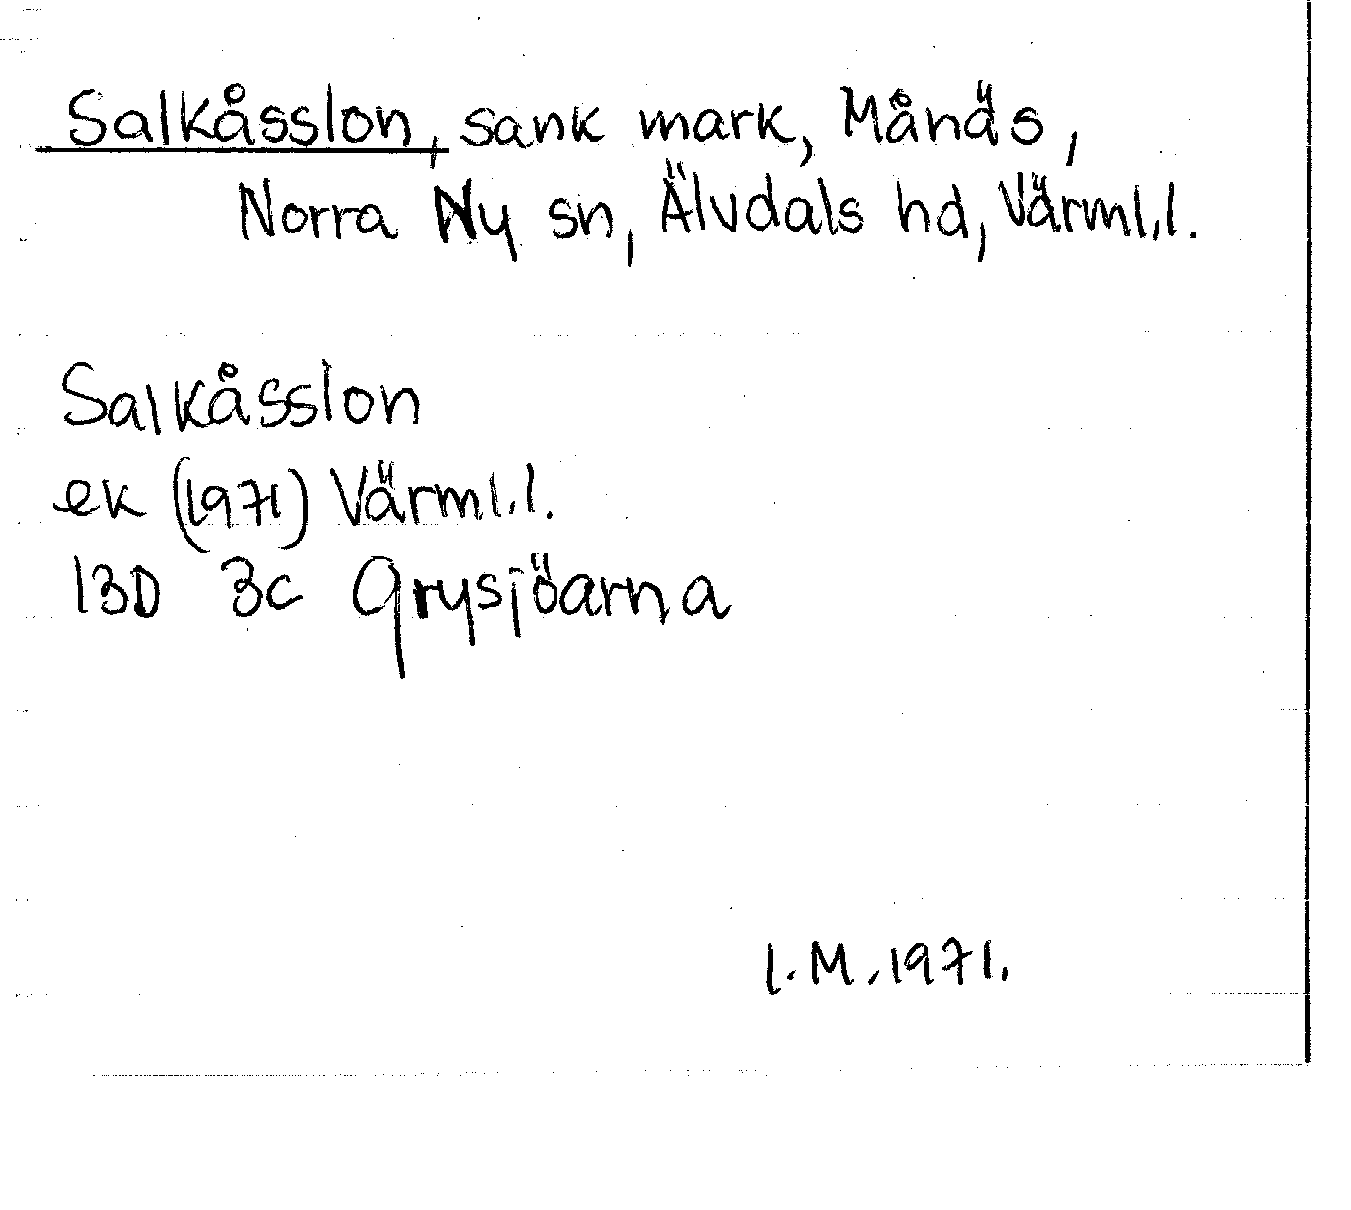 Salkåsslon, sank mark, Månäs,
Norra Ny sn, Älvdals hd, Värml.l.
Salkåsslon
ek (1971) Värml.l.
13D 3c Grysjöarna
I.M.1971.